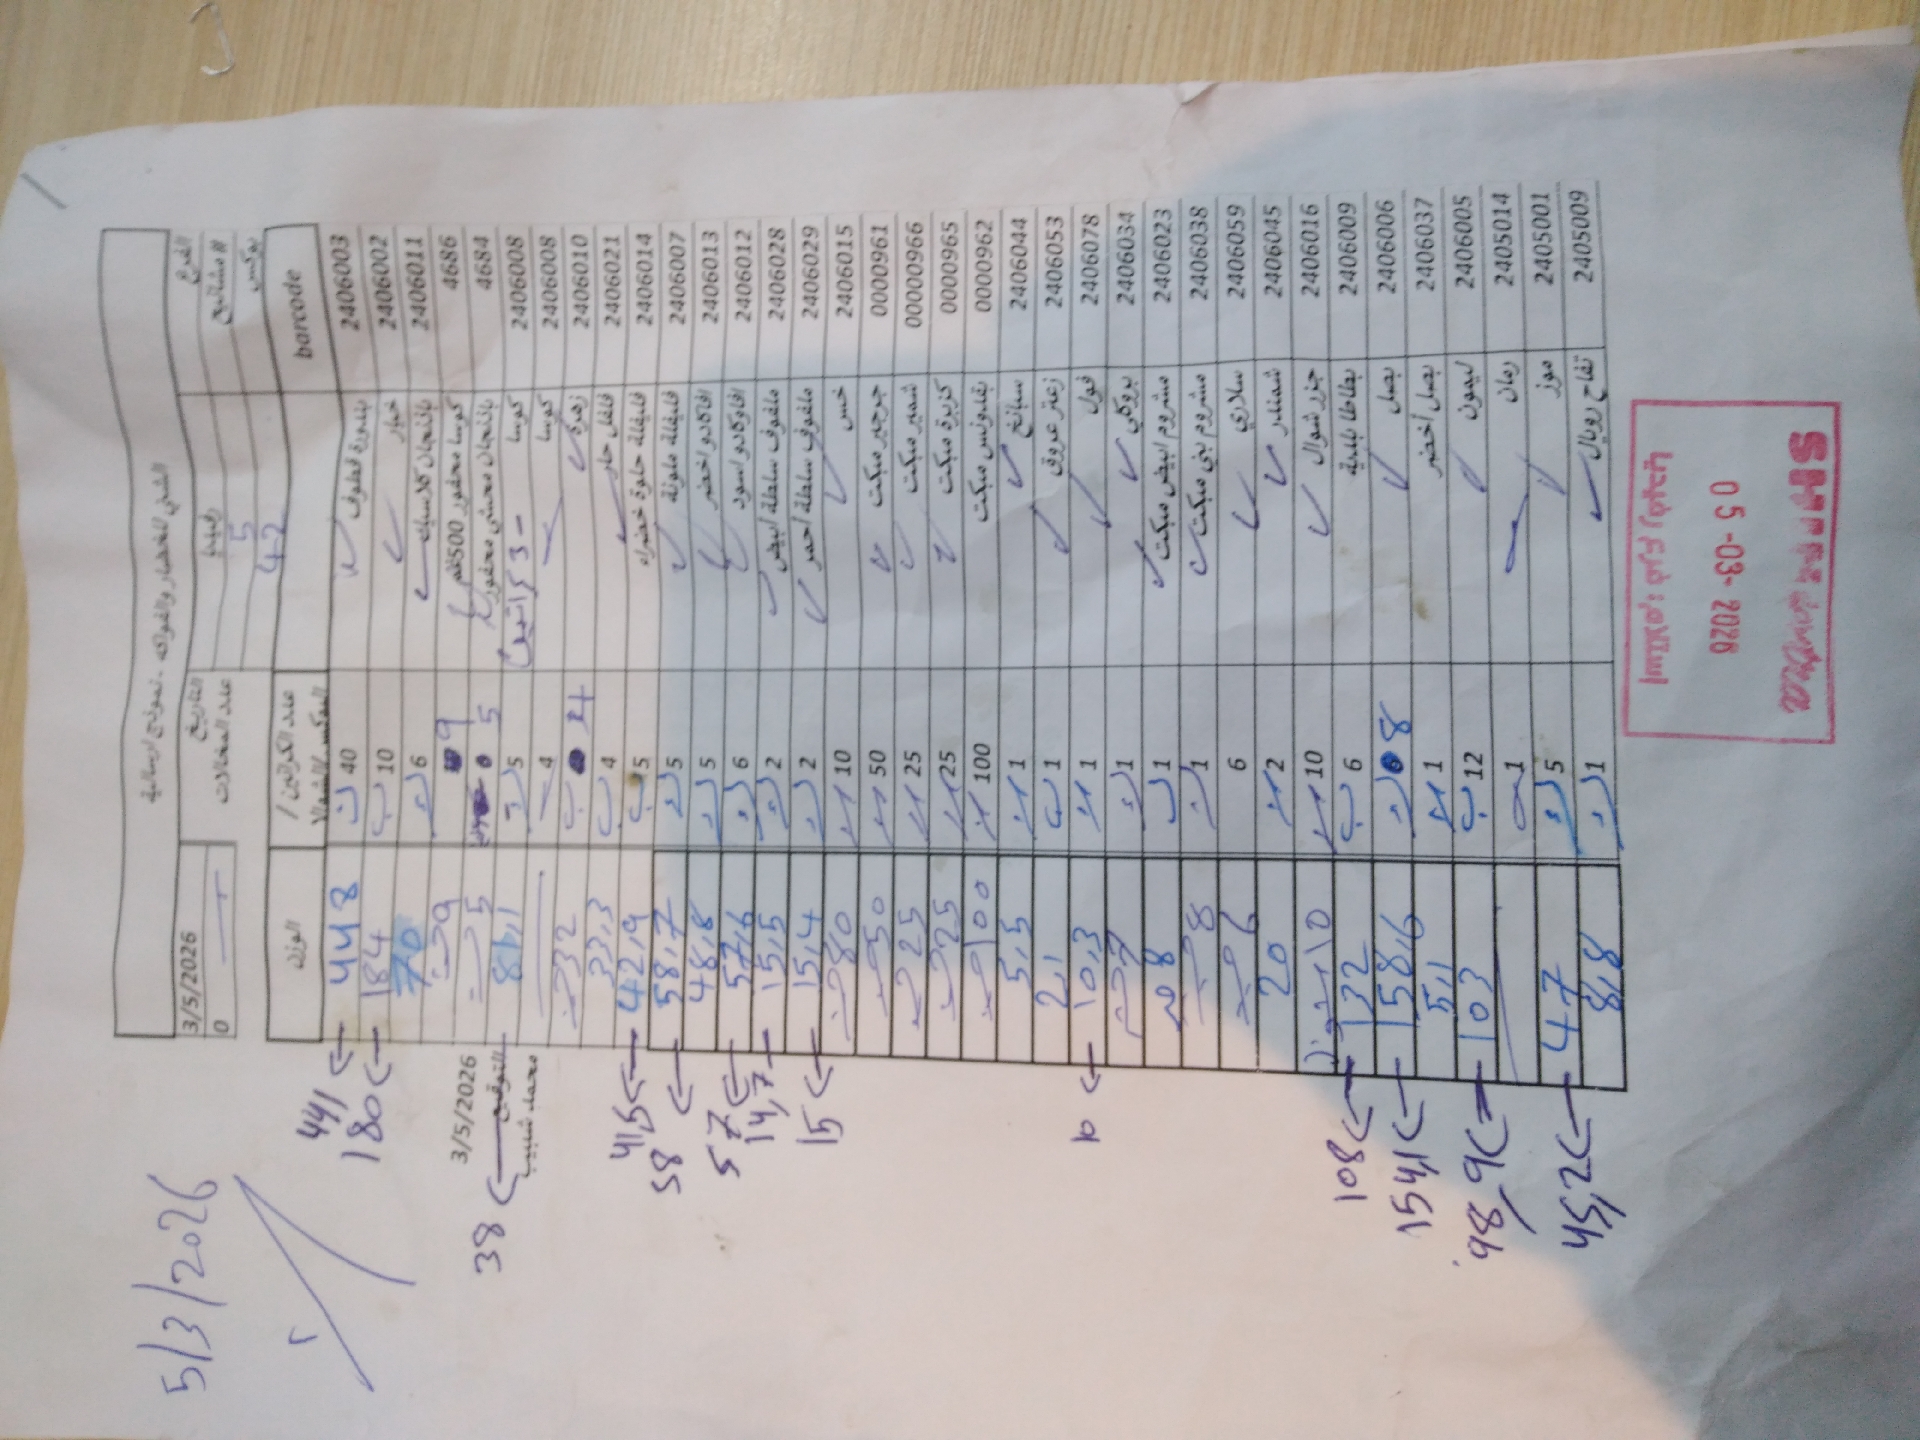 5/3/2026
الشني للخضار والفواكه - نموذج ارسالية
الفرع رفيديا التاريخ 3/5/2026
# مشاتيح 5 عدد المخالات 0
بوكس 42
barcode عدد الكراتين / البوكس/الشوال الوزن
2406003 بندورة قطوف 40 448 441
2406002 خيار 10 184 180
2406011 باذنجان كلاسيك 6 70
4686 كوسا محفور 500غم 9 9
4684 باذنجان محشي محفور 5 5
2406008 كوسا - 3 كراتين 5 81,1 38
2406008 كوسا 4
2406010 زهرة 4 32
2406021 فلفل حار 4 33,3
2406014 فليفلة حلوة خضراء 5 42,9 41,5
2406007 فليفلة ملونة 5 58,7 58
2406013 افاكادو اخضر 5 48,8
2406012 افاوكادو اسود 6 57,6 57
2406028 ملفوف سلطة ابيض 2 15,5 14,7
2406029 ملفوف سلطة احمر 2 15,4 15
2406015 خس 10 80
0000961 جرجير مبكت 50 50
00000966 شمير مبكت 25 25
0000965 كزبرة مبكت 25 25
0000962 بقدونس مبكت 100 100
2406044 سبانخ 1 5,5
2406053 زعتر عروق 1 2,1
2406078 فول 1 10,3 10
2406034 بروكلي 1 7
2406023 مشروم ابيض مبكت 1 8
2406038 مشروم بني مبكت 1 8
2406059 سلاري 6 6
2406045 شمندر 2 20
2406016 جزر شوال 10 10
2406009 بطاطا بلدية 6 132 108
2406006 بصل 8 158,6 154,1
2406037 بصل اخضر 1 5,1
2406005 ليمون 12 103 98,9
2405014 رمان 1
2405001 موز 5 47 45,2
2405009 تفاح رويال 1 8,8
3/5/2026
التوقيع
محمد شبيب
استلام: قسم الخضار
05-03-2026